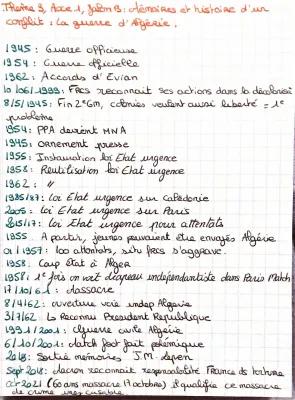 Thème 3, Axe 1, Jalon 3 : Mémoires et histoire d'un
conflit : La guerre d'Algérie.
1945 : Guerre officieuse
1954 : Guerre officielle
1962 : Accords d'Evian
10 06/1999 : reconnait ses actions dans la
8/5/1945 : Fin 2e GM, colonies veulent aussi liberté = 1e
problème
1954 : PPA devient MNA
1945 : presse
1955 : Instauration loi Etat urgence
1958 : Réutilisation loi Etat urgence
1962 : "
1985/87 : loi Etat urgence sur Calédonie
2005 : loi Etat urgence sur Paris
2015/17 : loi Etat urgence pour attentats
1955 A partir, jeunes pouvaient être envoyés Algérie
01/1957 : 100 attentats, situ s'aggrave.
1958 : Coup Etat à Alger
1958 : 1e fois on voit drapeau indépendantiste dans Paris Match
17/10/61 : Massacre
8/4/62 : ouverture voie indep Algérie
3/7/62 : Reconnu President Republique
1991/2001 : Guerre civile Algérie
6/10/2001 : match foot fait polémique
2018 : Sortie mémoires J.M. Lepen
Sept 2018 : Macron reconnait responsabilité France de torture
oct 2021 (60 ans massacre 17 octobre) il qualifie ce massacre
de crime inexcusable